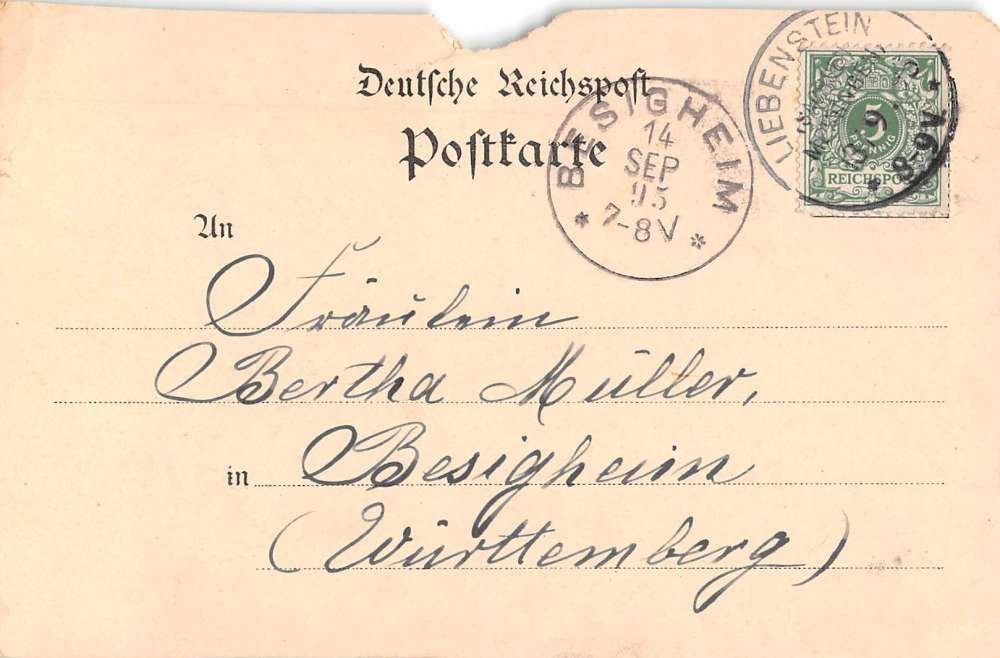 Deutsche Reichspost
Postkarte
LIEBENSTEIN
5
REICHSPOST
8-9V
BESIGHEIM
14
SEP
95
7-8V
An
Fräulein
Bertha Müller,
in Besigheim
(Württemberg)